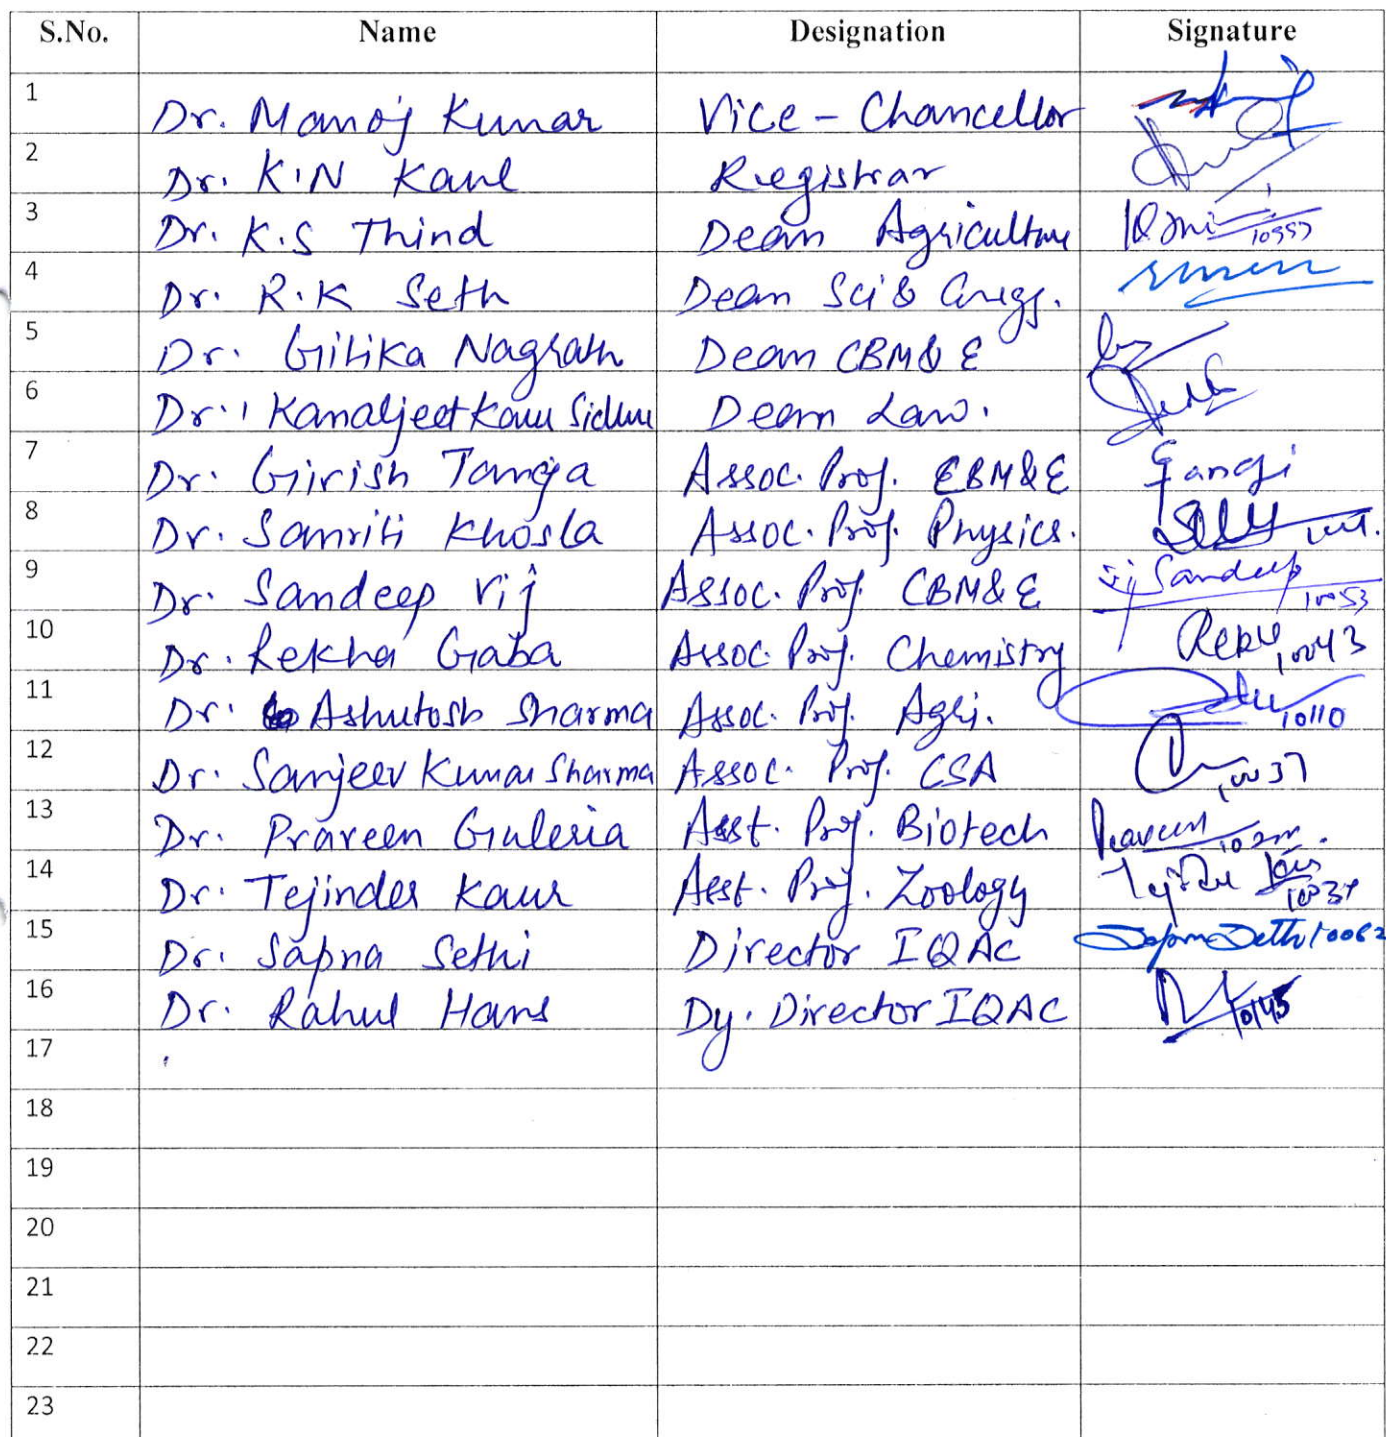 S.No. Name Designation Signature
1 Dr. Manoj Kumar Vice - Chancellor
2 Dr. K.N Kaul Registrar
3 Dr. K.S Thind Dean Agriculture
4 Dr. R.K Seth Dean Sci & Engg.
5 Dr. Gitika Nagrath Dean CBM& E
6 Dr. Kamaljeet Kaur Sidhu Dean Law.
7 Dr. Girish Taneja Assoc. Prof. CBM&E
8 Dr. Samriti Khosla Assoc. Prof. Physics.
9 Dr. Sandeep Vij Assoc. Prof. CBM&E Sandeep 10053
10 Dr. Rekha Gaba Assoc. Prof. Chemistry 10043
11 Dr. Ashutosh Sharma Assoc. Prof. Agri. 10110
12 Dr. Sanjeev Kumar Sharma Assoc. Prof. CSA 10037
13 Dr. Praveen Guleria Asst. Prof. Biotech Praveen
14 Dr. Tejinder Kaur Asst. Prof. Zoology
15 Dr. Sapna Sethi Director IQAC Sapna Sethi 10062
16 Dr. Rahul Hans Dy. Director IQAC 10145
17
18
19
20
21
22
23